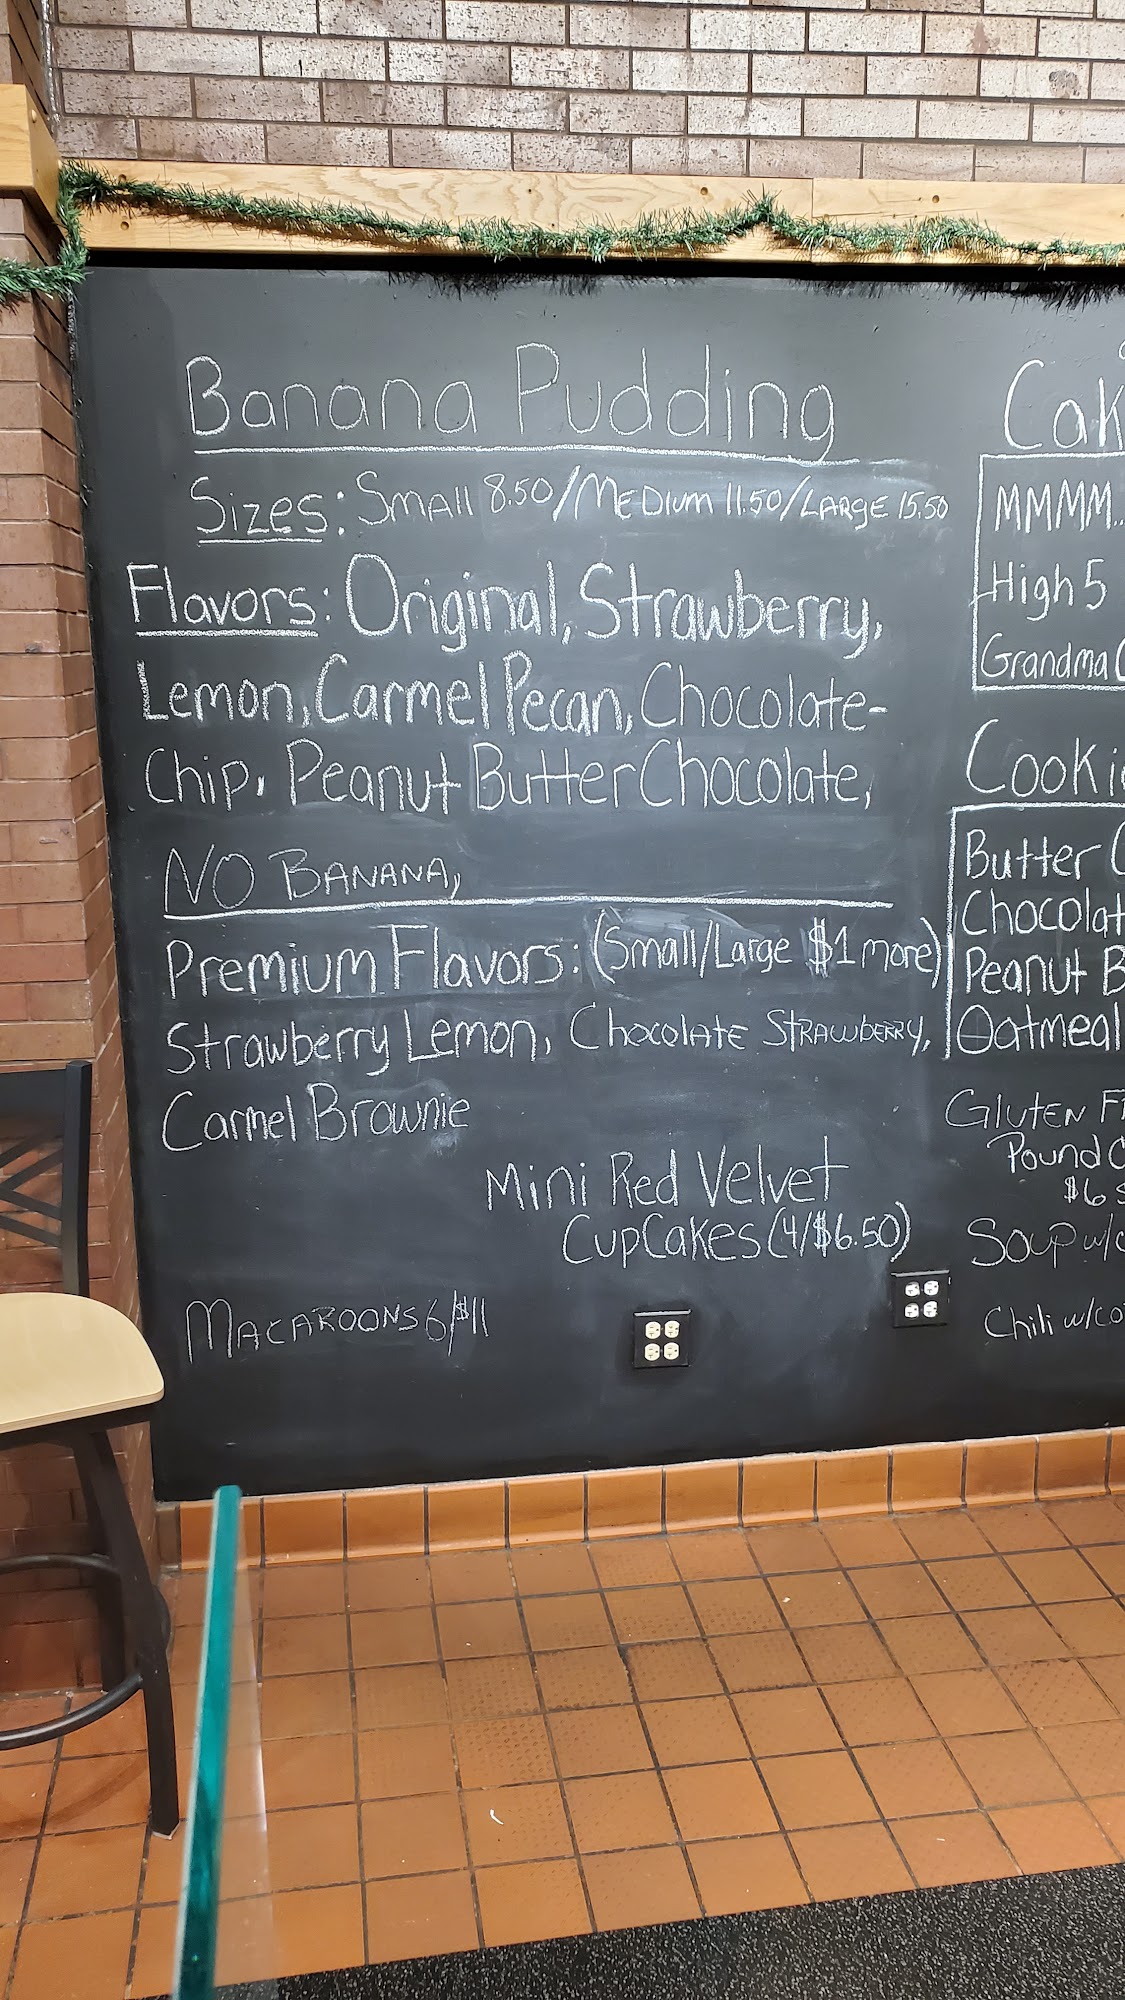 Banana Pudding
Sizes: Small 8.50/Medium 11.50/Large 15.50
Flavors: Original, Strawberry,
Lemon, Carmel Pecan, Chocolate-
Chip, Peanut Butter Chocolate,
NO BANANA,
Premium Flavors: (Small/Large $1 more)
Strawberry Lemon, Chocolate Strawberry,
Carmel Brownie
Mini Red Velvet
CupCakes (4/$6.50)
Macaroons 6/$11
MMMM..
High 5
Grandma
Butter
Peanut
Oatmeal
Gluten
Pound
$6
Soup w/
Chili w/